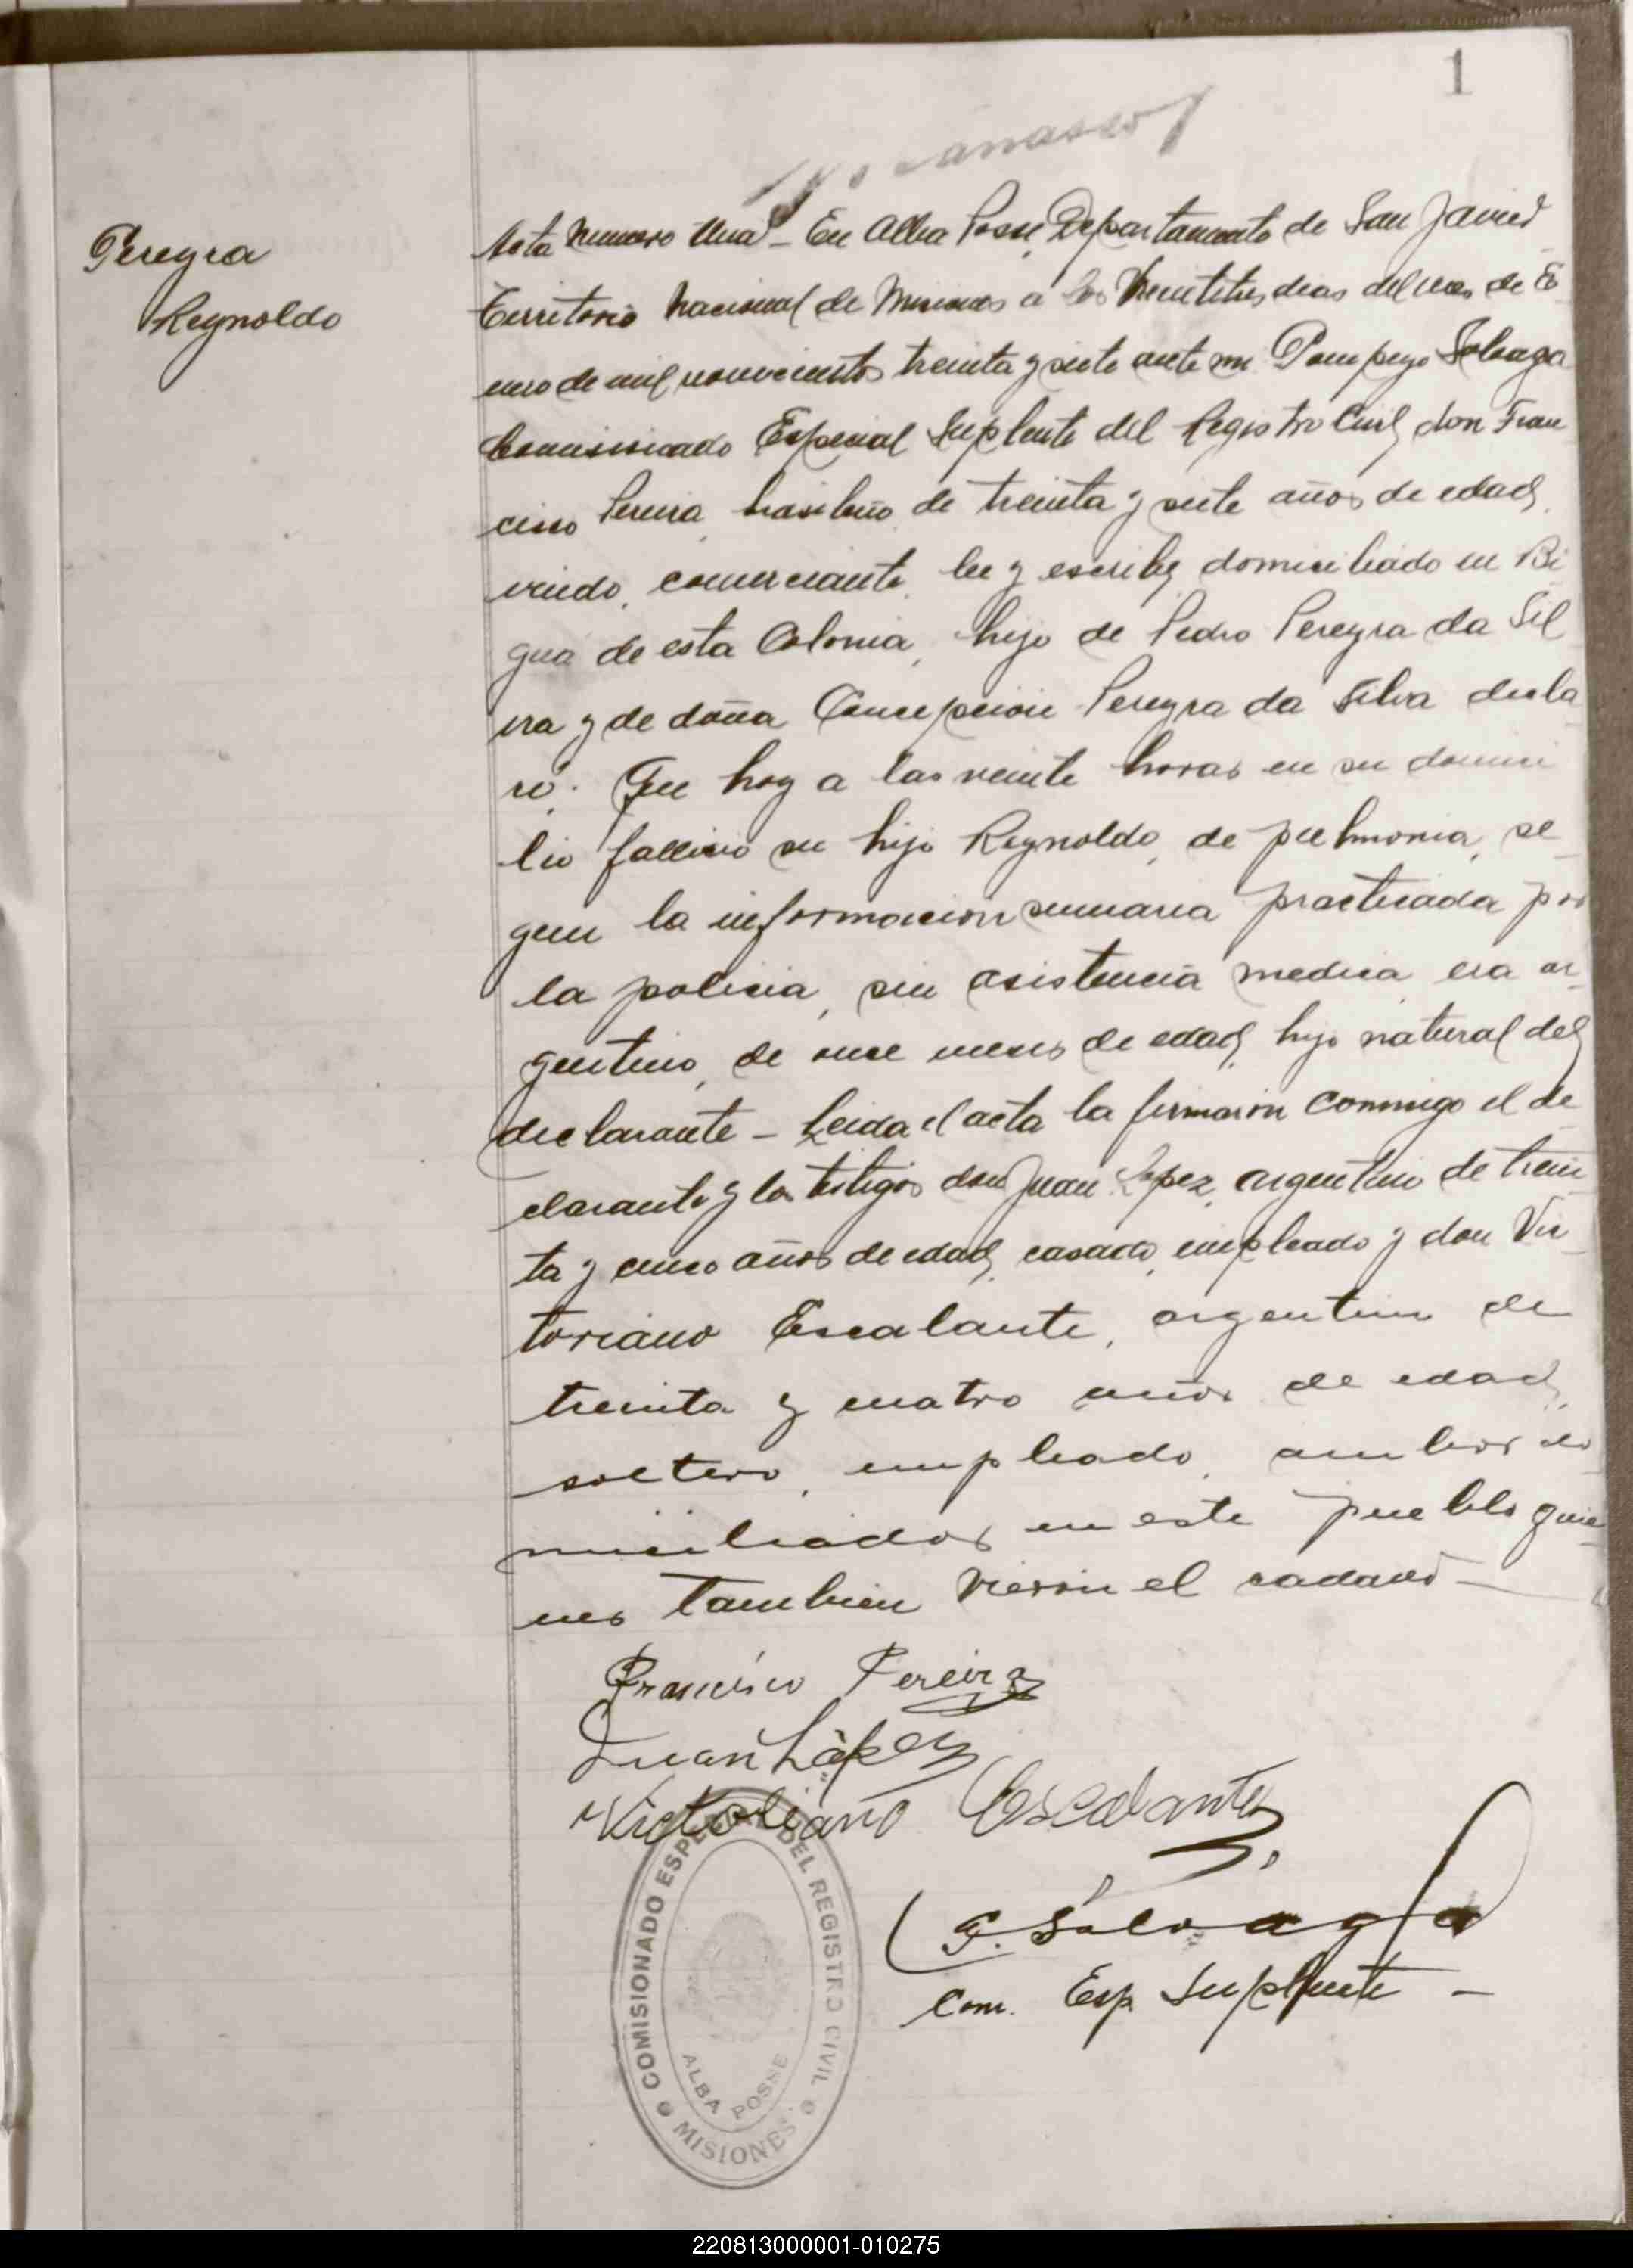 1
Pereyra
Reynoldo
Acta Numero Una - En Alba Posse, Departamento de San Javier
Territorio Nacional de Misiones a los Veintitres dias del mes de E
nero de mil novecientos treinta y siete ante mi Pompeyo Salvaga
Comisionado Especial Suplente del Registro Civil, don Fran
cisco Pereira, brasileño, de treinta y siete años de edad,
viudo, comerciante, lee y escribe, domiciliado en Bi
guá de esta Colonia, hijo de Pedro Pereyra da Sil
va y de doña Concepcion Pereyra da Silva decla
ró: Que hoy a las veinte horas en su domici
lio fallecio su hijo Reynoldo, de pulmonia, se
gun la informacion sumaria practicada por
la policia, sin asistencia medica era ar
gentino, de once meses de edad, hijo natural del
declarante - Leida el acta la firmaron conmigo el de
clarante y los testigos don Juan Lopez, argentino de trein
ta y cinco años de edad, casado, empleado y don Vic
toriano Escalante, argentino de
treinta y cuatro años de edad,
soltero, empleado, ambos do
miciliados en este pueblo quie
nes tambien vieron el cadaver -
Francisco Pereira
Juan López
Victoriano Escalante
P. Salvaga
Com. Esp. Suplente -
COMISIONADO ESPECIAL DEL REGISTRO CIVIL
ALBA POSSE
MISIONES
220813000001-010275